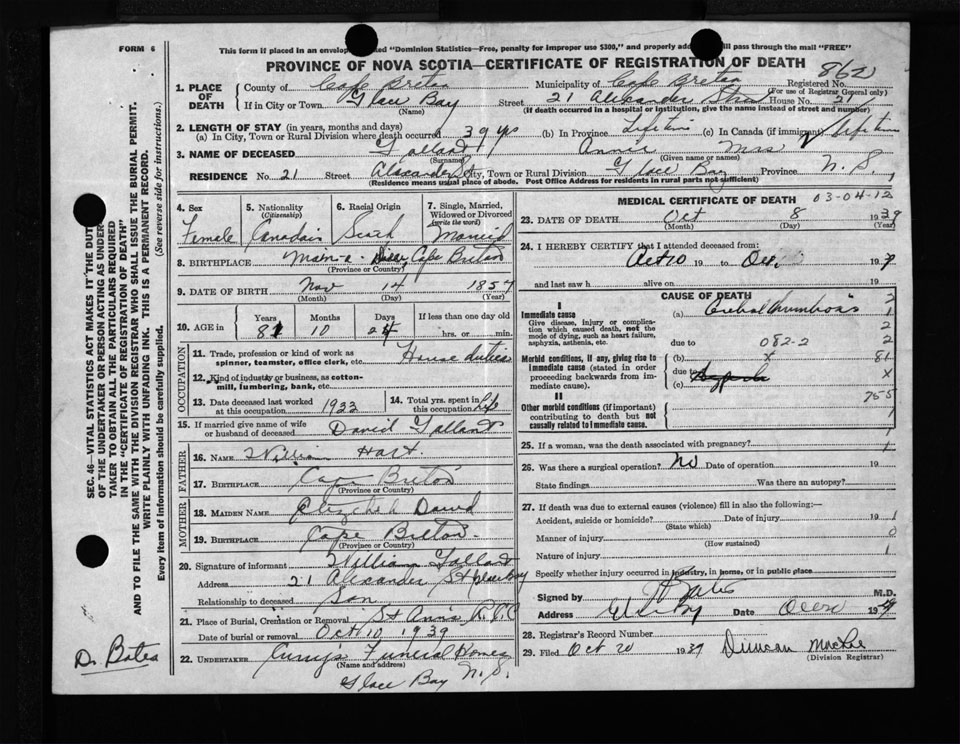 FORM 6
This form if placed in an envelop ed "Dominion Statistics—Free, penalty for improper use $300," and properly add ll pass through the mail "FREE"
PROVINCE OF NOVA SCOTIA—CERTIFICATE OF REGISTRATION OF DEATH
862
1. PLACE OF DEATH
County of Cape Breton Municipality of Cape Breton Registered No.
(For use of Registrar General only)
If in City or Town Glace Bay (Name) Street 21 Alexander House No. 21
(If death occurred in a hospital or institution, give the name instead of street and number)
2. LENGTH OF STAY (in years, months and days)
(a) In City, Town or Rural Division where death occurred 39 yrs (b) In Province Lifetime (c) In Canada (if immigrant) Lifetime
3. NAME OF DECEASED Gallant (Surname) Annie Mrs (Given name or names)
RESIDENCE No. 21 Street Alexander St City, Town or Rural Division Glace Bay Province N. S.
(Residence means usual place of abode. Post Office Address for residents in rural parts not sufficient)
4. Sex Female
5. Nationality (Citizenship) Canadain
6. Racial Origin Scotch
7. Single, Married, Widowed or Divorced (write the word) Married
8. BIRTHPLACE Main-a-Dieu, Cape Breton
(Province or Country)
9. DATE OF BIRTH Nov (Month) 14 (Day) 1857 (Year)
10. AGE in Years 81 Months 10 Days 24 If less than one day hrs. or min.
OCCUPATION
11. Trade, profession or kind of work as spinner, teamster, office clerk, etc. House duties
12. Kind of industry or business, as cotton-mill, lumbering, bank, etc.
13. Date deceased last worked at this occupation 1933
14. Total yrs. spent in this occupation Life
15. If married give name of wife or husband of deceased David Gallant
FATHER
16. NAME William Hart
17. BIRTHPLACE Cape Breton
(Province or Country)
MOTHER
18. MAIDEN NAME Elizabeth David
19. BIRTHPLACE Cape Breton
(Province or Country)
20. Signature of informant William Gallant
Address 21 Alexander St Glace Bay
Relationship to deceased Son
21. Place of Burial, Cremation or Removal St Anns R.C.C
Date of burial or removal Oct 10 1939
22. UNDERTAKER Currys Funeral Homes
(Name and address)
Glace Bay N. S.
MEDICAL CERTIFICATE OF DEATH 03-04-12
23. DATE OF DEATH Oct (Month) 8 (Day) 1939 (Year)
24. I HEREBY CERTIFY that I attended deceased from:
19 to 19
and last saw h alive on 19
CAUSE OF DEATH
I
Immediate cause
Give disease, injury or complication which caused death, not the mode of dying, such as heart failure, asphyxia, asthenia, etc.
(a)
2
2
due to 082-2 2
Morbid conditions, if any, giving rise to immediate cause (stated in order proceeding backwards from immediate cause).
(b) x 81
due to x
(c)
755
II
Other morbid conditions (if important) contributing to death but not causally related to immediate cause.
1
1
25. If a woman, was the death associated with pregnancy? 1
26. Was there a surgical operation? No Date of operation 19
State findings Was there an autopsy?
27. If death was due to external causes (violence) fill in also the following:
Accident, suicide or homicide? (State which) Date of injury 19 1
Manner of injury (How sustained) 0
Nature of injury 1
Specify whether injury occurred in industry, in home, or in public place
Signed by Bates M.D.
Address Date 19
28. Registrar's Record Number
29. Filed Oct 20 1939 Duncan MacRae (Division Registrar)
SEC. 46—VITAL STATISTICS ACT MAKES IT THE DUT
OF THE UNDERTAKER OR PERSON ACTING AS UNDER-
TAKER TO OBTAIN ALL THE PARTICULARS REQUIRED
IN THE "CERTIFICATE OF REGISTRATION OF DEATH"
AND TO FILE THE SAME WITH THE DIVISION REGISTRAR WHO SHALL ISSUE THE BURIAL PERMIT.
WRITE PLAINLY WITH UNFADING INK. THIS IS A PERMANENT RECORD.
Every item of information should be carefully supplied. (See reverse side for instructions.)
Dr Bates